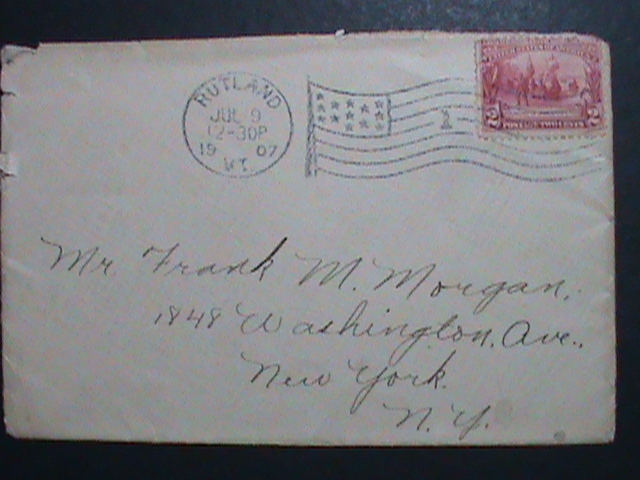 RUTLAND
JUL 9
12-30P
1907
VT.
1
UNITED STATES OF AMERICA
2 2
POSTAGE TWO CENTS
Mr. Frank M. Morgan,
1848 Washington. Ave.,
New York.
N. Y.